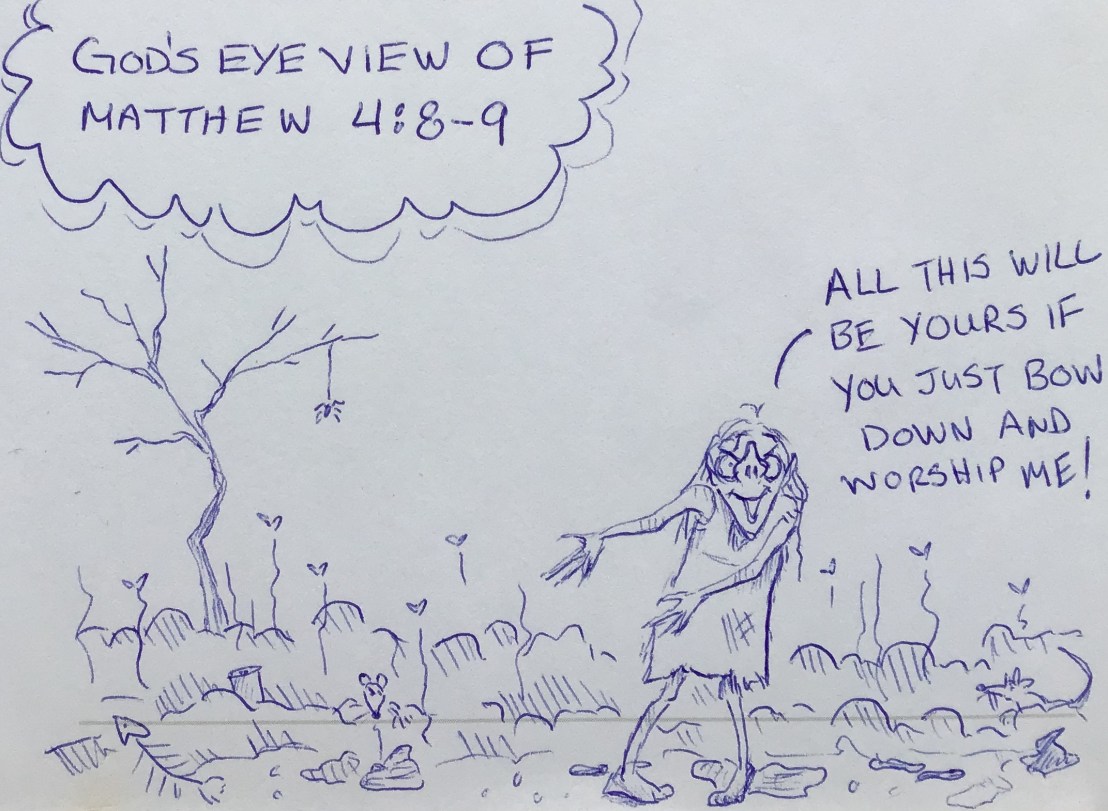 GOD'S EYE VIEW OF
MATTHEW 4:8-9
ALL THIS WILL
BE YOURS IF
YOU JUST BOW
DOWN AND
WORSHIP ME!